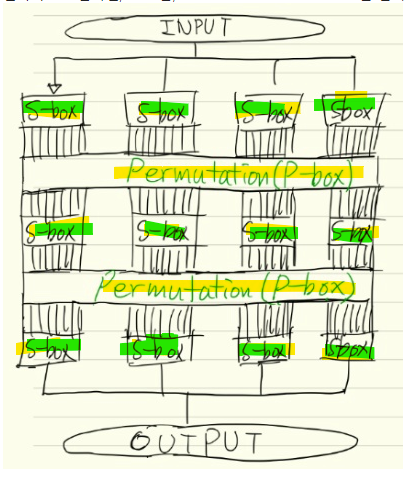 INPUT
S-box S-box S-box Sbox
Permutation(P-box)
S-box S-box S-box S-box
Permutation(P-box)
S-box S-box S-box Sbox
OUTPUT